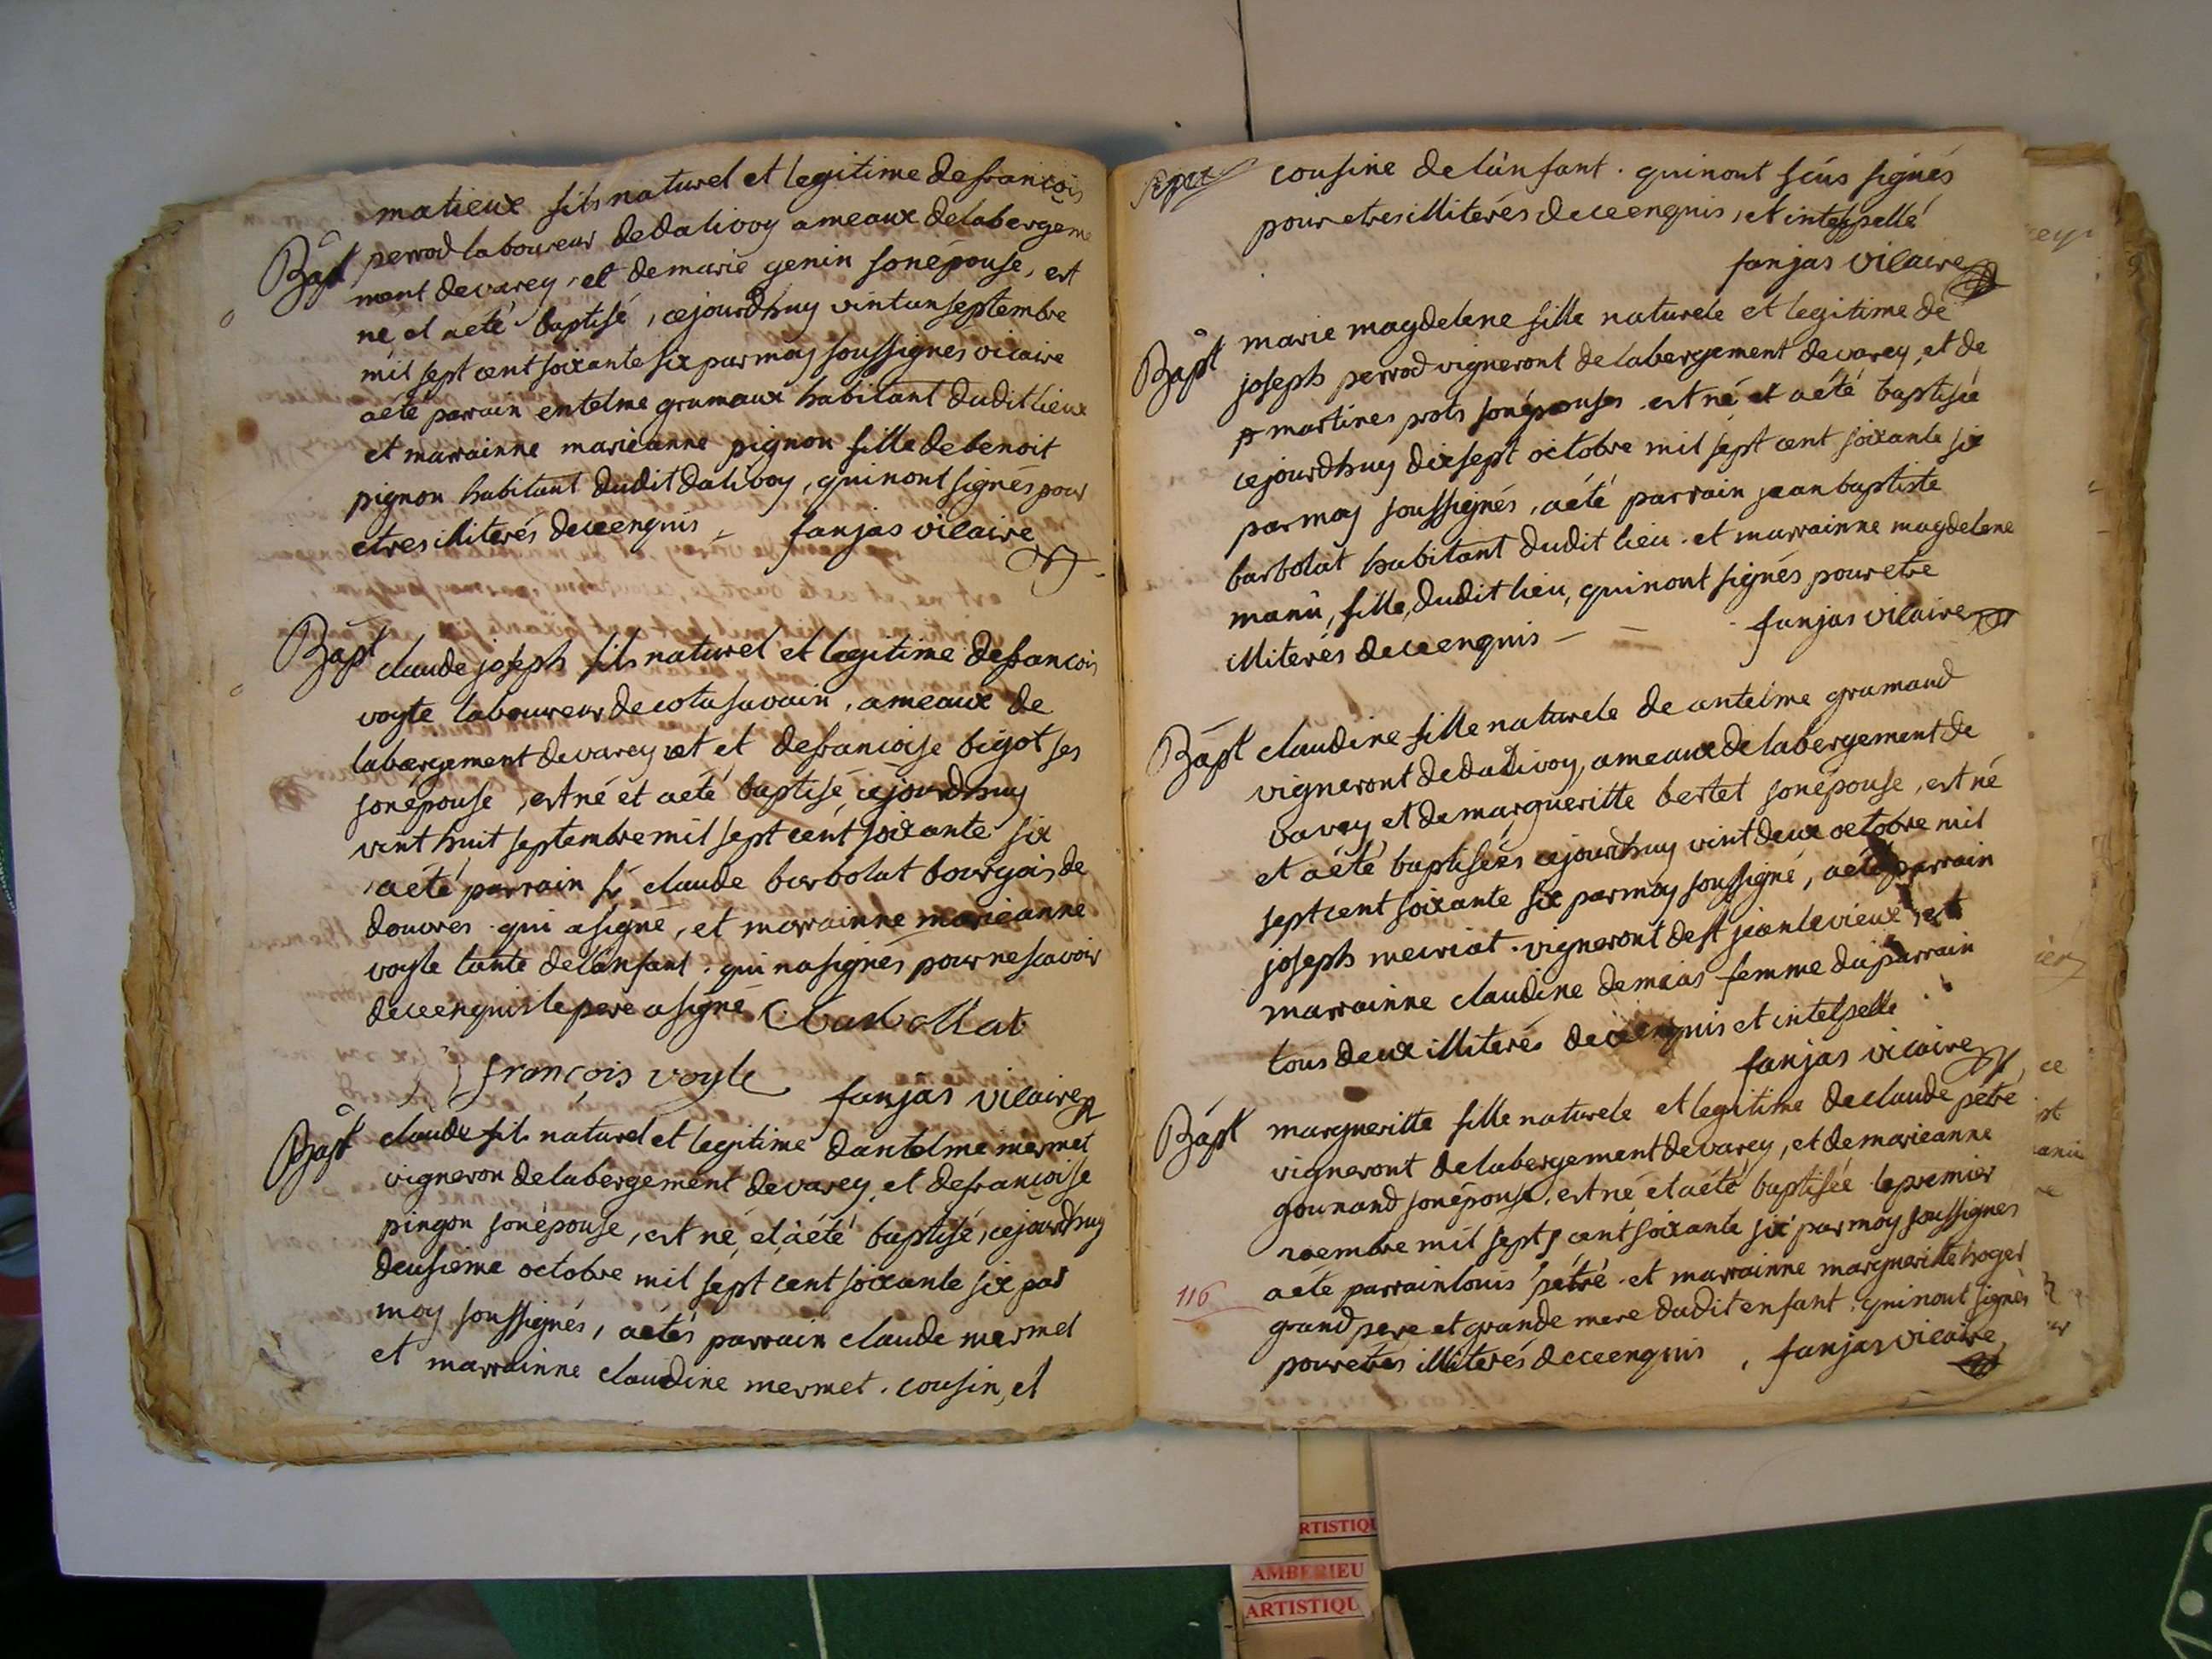 matieux fils naturel et legitime de francois
Bapt perrod laboureur de dalivoy ameaux de labergeme
ment de varey, et de marie genin son épouse, est
ne, et aeté baptisé, cejourdhuy vint un septembre
mil sept cent soixante six par moy soussignés vicaire
aété parrain entelme grumaux habitant dudit lieux
et marrainne marieanne pignon fille de benoit
pignon habitant dudit dalivoy, qui nont signés pour
etres illiterés de ce enquis fanjas vicaire
Bapt claude joseph fils naturel et legitime de francois
voyte laboureur de cotasavain, ameaux de
labergement de varey et et de francoise bigot ses
son épouse, est né et aété baptisé cejourdhuy
vint huit septembre mil sept cent soixante six
aété parrain sr claude barbolat bourgois de
douvres qui a signé, et marrainne marieanne
voyte tante de lanfant. qui na signés pour ne scavoir
de ce enquis le pere a signé C barbollat
françois voyte
fanjas vicaire
Bapt claude fils naturel et legitime dantelme mermet
vigneron de labergement de varey et de francoise
pingon son épouse, est né, et aété baptisé, cejourdhuy
deusieme octobre mil sept cent soixante six par
moy soussignés, aétés parrain claude mermet
et marrainne claudine mermet. cousin, et
cousine de lanfant. qui nont scus signés
pour etres illiterés de ce enquis, et intelpellé
fanjas vicaire
Bapt marie magdelene fille naturele et legitime de
joseph perrod vigneront de labergement de varey, et de
martines prots son épouses est né et aété baptisée
cejourdhuy dix sept octobre mil sept cent soixante six
par moy soussignés, aété parrain jean baptiste
barbolat habitant dudit lieu et marrainne magdelene
manû, fille, dudit lieu, qui nont signés pour etre
illiterés de ce enquis — — fanjas vicaire
Bapt claudine fille naturele de antelme grumaud
vigneront de dalivoy, ameaux de labergement de
varey et de margueritte bertet son épouse, est né
et aété baptisées cejourdhuy vint deux octobre mil
sept cent soixante six par moy soussigné, aété parrain
joseph meiriat. vigneront de st jean le vieux et
marrainne claudine demeas femme du parrain
tous deux illiterés de ce enquis et intelpellé
fanjas vicaire
Bapt margueritte fille naturele et legitime de claude petre
vigneront de labergement de varey, et de marieanne
gounand son épouse, est né et aété baptisée le premier
noembre mil sept cent soixante six par moy soussignés
aété parrain louis pétré et marrainne margueritte hoged
116 grand pere et grande mere dudit enfant. qui nont signés
pour etres illiterés de ce enquis, fanjas vicaire
RTISTIQU
AMBERIEU
ARTISTIQU